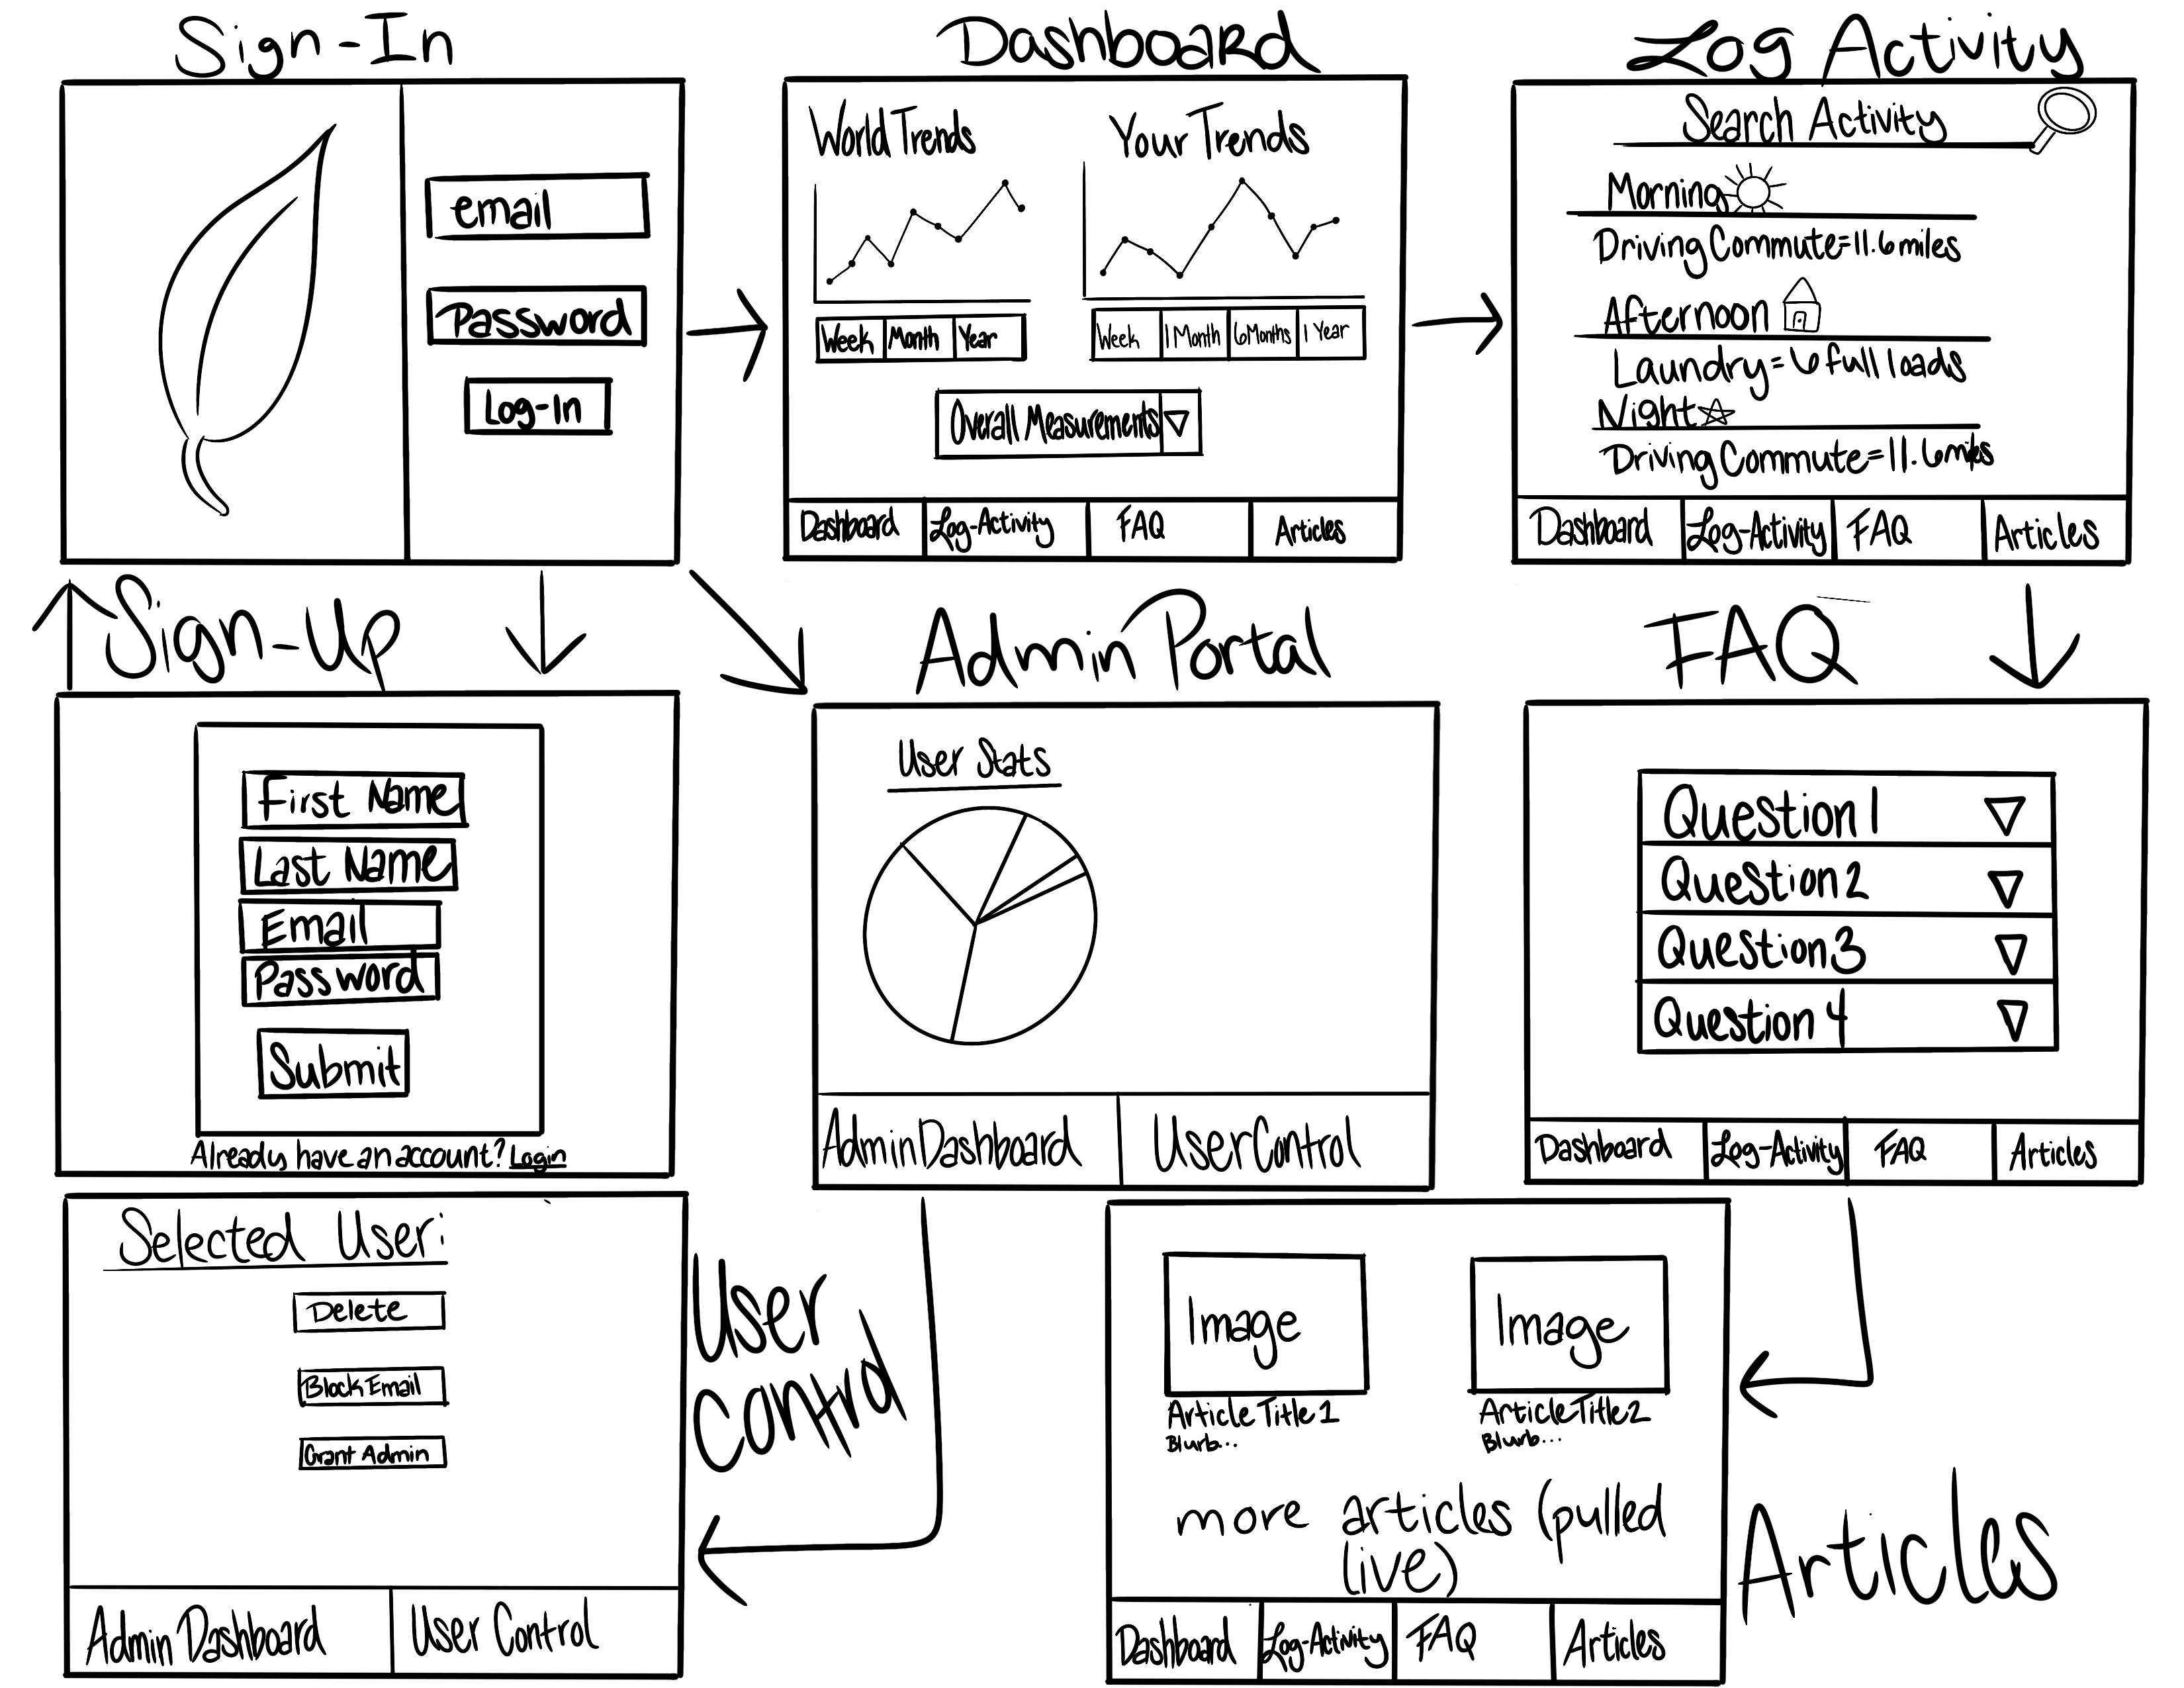 Sign-In
email
Password
Log-In
Dashboard
World Trends
Week Month Year
Your Trends
Week 1 Month 6 Months 1 Year
Overall Measurements
Dashboard Log-Activity FAQ Articles
Log Activity
Search Activity
Morning
Driving Commute=11.6 miles
Afternoon
Laundry=6 full loads
Night
Driving Commute=11.6 miles
Dashboard Log-Activity FAQ Articles
Sign-Up
First Name
Last Name
Email
Password
Submit
Already have an account? Login
Admin Portal
User Stats
Admin Dashboard User Control
FAQ
Question 1
Question 2
Question 3
Question 4
Dashboard Log-Activity FAQ Articles
Selected User:
Delete
Block Email
Grant Admin
Admin Dashboard User Control
User
Control
Image
Article Title 1
Blurb...
Image
Article Title 2
Blurb...
more articles (pulled
live)
Dashboard Log-Activity FAQ Articles
Articles